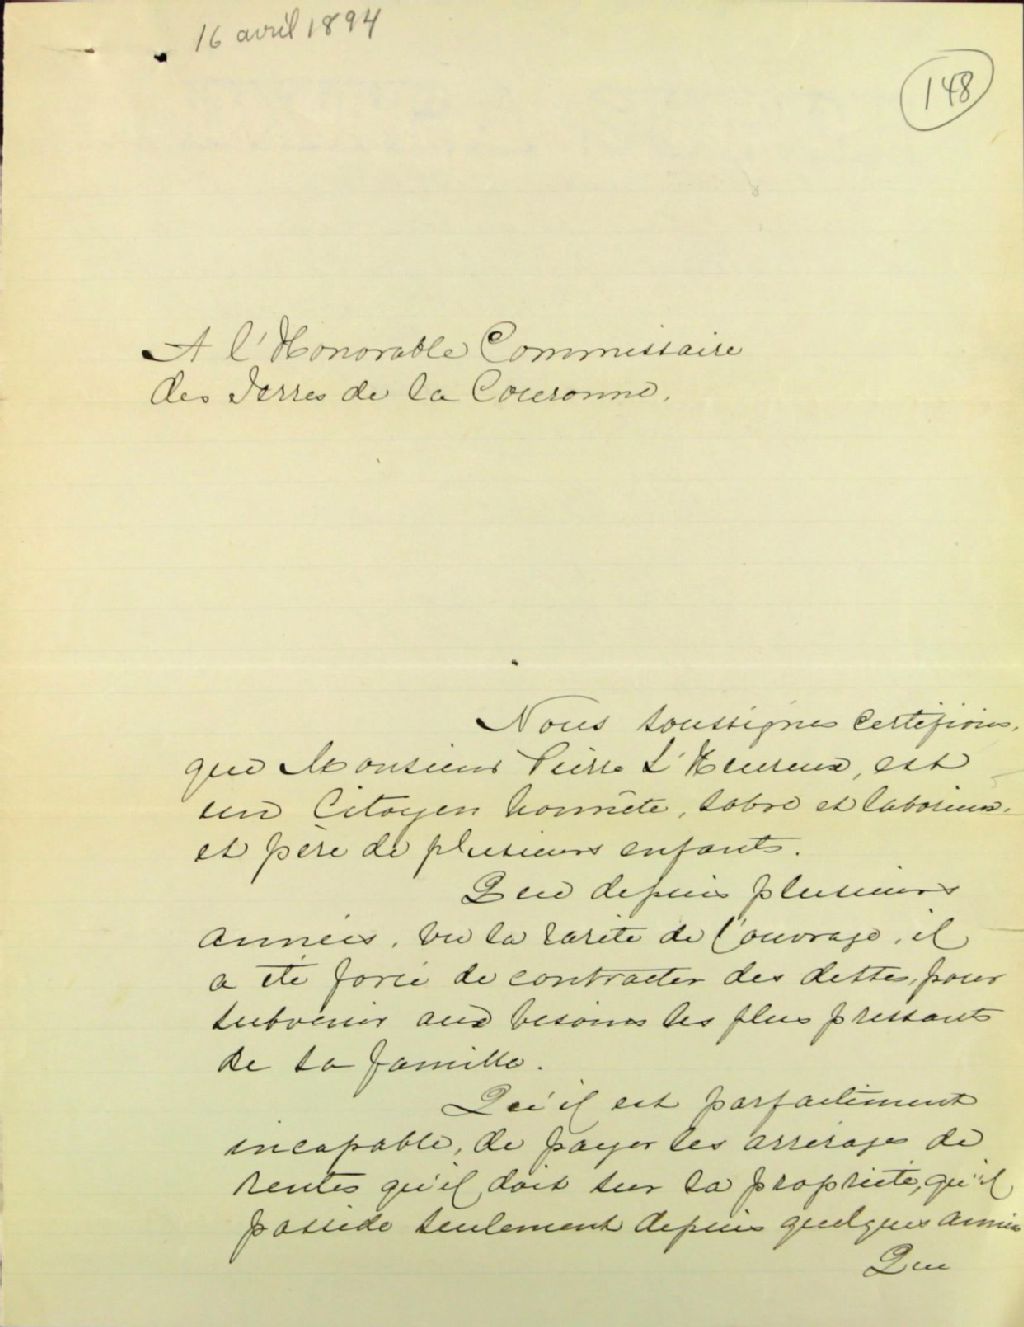 16 avril 1894
148
A l'Honorable Commissaire
des Terres de la Couronne.
Nous soussignés certifions,
que Monsieur Pierre L'Heureux, est
un Citoyen honnête, sobre et laborieux,
et père de plusieurs enfants.
Que depuis plusieurs
années, vu la rareté de l'ouvrage, il
a été forcé de contracter des dettes, pour
subvenir aux besoins les plus pressants
de sa famille.
Qu'il est parfaitement
incapable, de payer les arrérages de
rentes qu'il doit sur sa propriété, qu'il
possède seulement depuis quelques années
Que